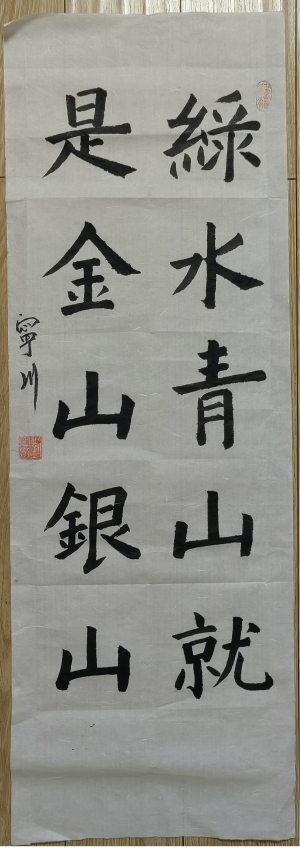 綠水青山就
是金山銀山
寧川